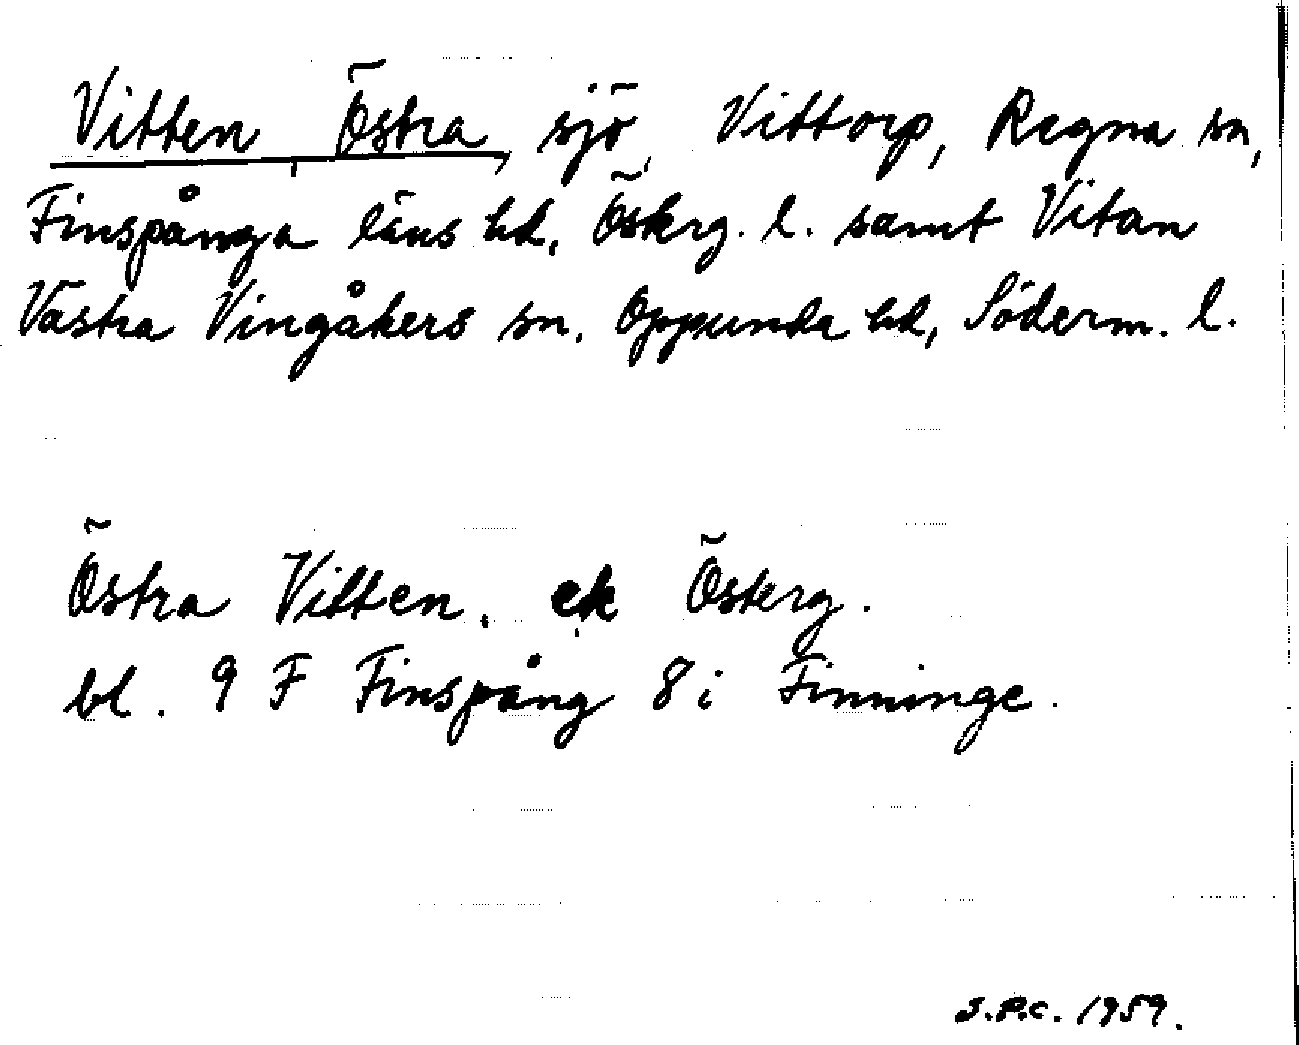 Vitten, Östra, sjö, Vittorp, Regna sn,
Finspånga läns hd, Österg. l. samt Vitan
Västra Vingåkers sn. Oppunda hd, Söderm. l.
Östra Vitten. ek Österg.
bl. 9 F Finspång 8 i Finninge.
S.P.C. 1959.